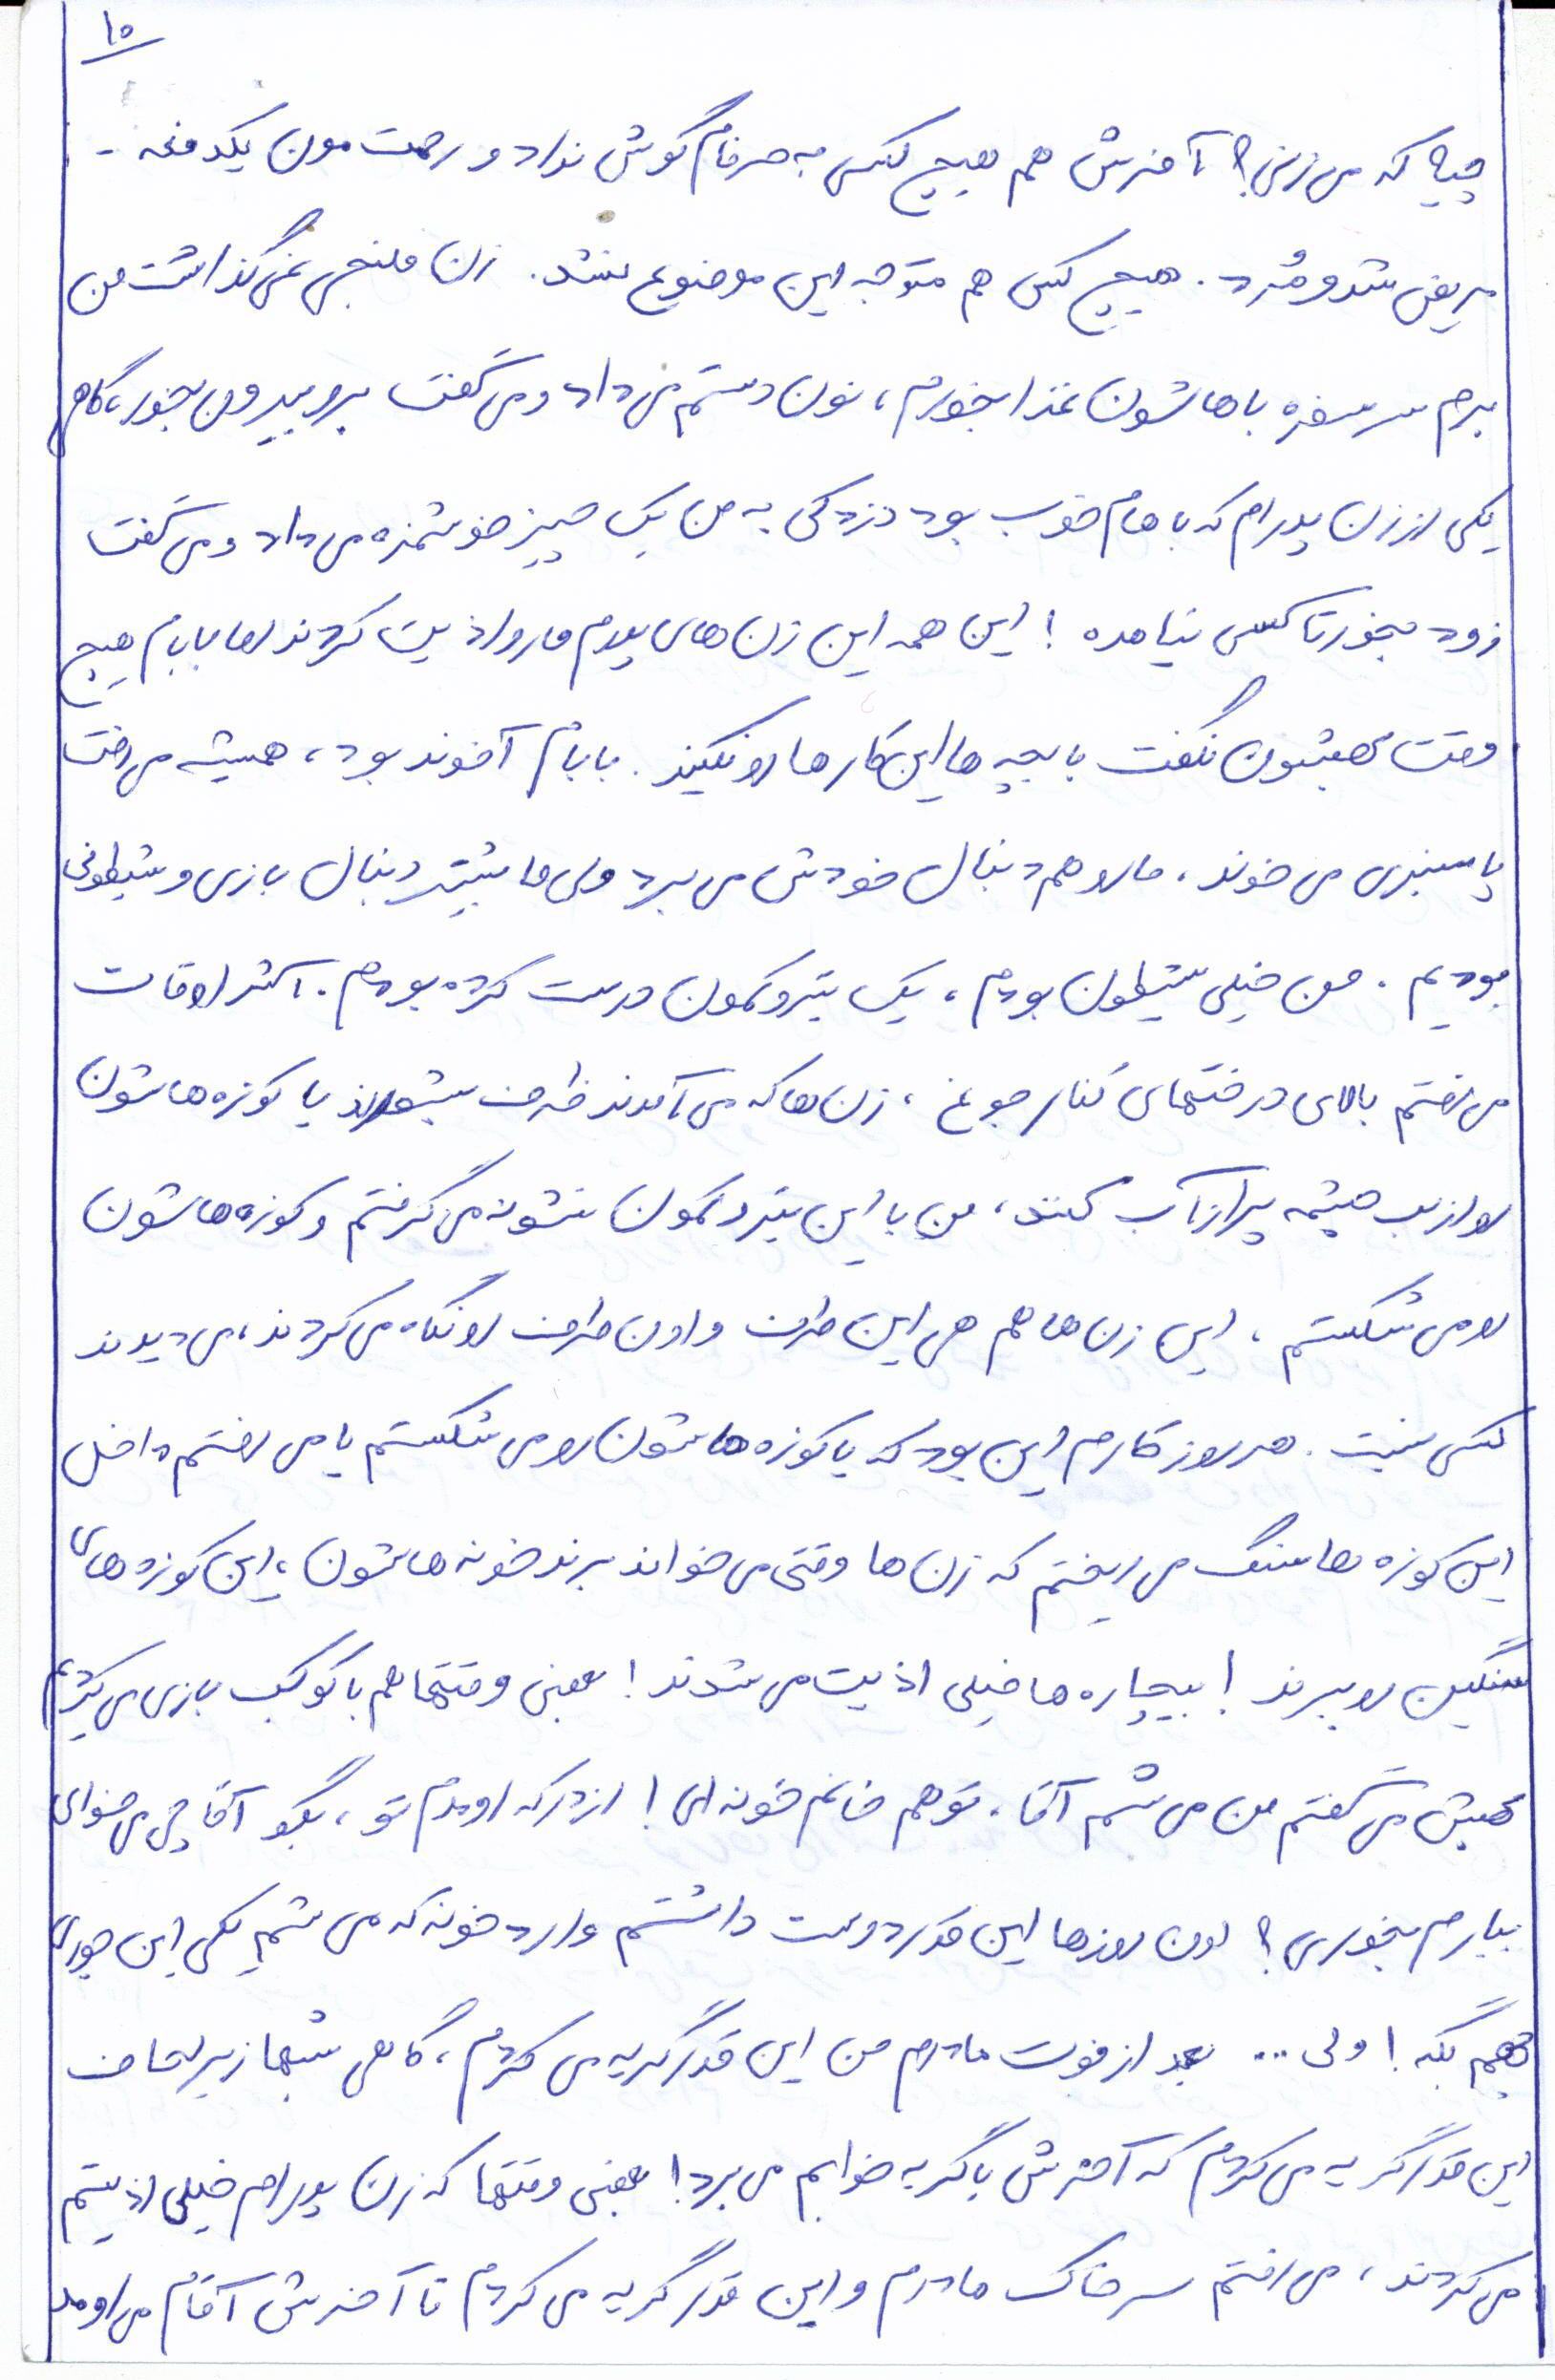 ۱۵
چیه که می زنی؟ آخرش هم هیچ کس به حرفام گوش نداد و رحمت مون یکدفعه -
مریض شد و مُرد. هیچ کس هم متوجه این موضوع نشد. زن نمی گذاشت من
برم سر سفره باهاشون غذا بخورم، نون دستم می داد و می گفت برو بیرون بخور، گاهی
یکی از زن پدرام که باهام خوب بود دزدکی به من یک چیز خوشمزه می داد و می گفت
زود بخور تا کسی نیامده! این همه این زن های پدرم ما رو اذیت کردند اما بابام هیچ
وقت بهشون نگفت با بچه ها این کارها رو نکنید. بابام آخوند بود، همیشه می رفت
پامنبری می خوند، ما رو هم دنبال خودش می برد ولی ما بیشتر دنبال بازی و شیطونی
بودیم. من خیلی شیطون بودم، یک تیروکمون درست کرده بودم. اکثر اوقات
می رفتم بالای درختهای کنار جوغ، زن ها که می آمدند ظرف بشورند یا کوزه هاشون
رو از لب چشمه پر از آب کنند، من با این تیروکمون نشونه می گرفتم و کوزه هاشون
رو می شکستم، این زن ها هم هی این طرف و اون طرف رو نگاه می کردند، می دیدند
کسی نیست. هر روز کارم این بود که یا کوزه هاشون رو می شکستم یا می رفتم داخل
این کوزه ها سنگ می ریختم که زن ها وقتی می خواند برند خونه هاشون، این کوزه های
سنگین رو ببرند! بیچاره ها خیلی اذیت می شدند! بعضی وقتها هم با کوکب بازی می کردم
بهش می گفتم من می شم آقا، تو هم خانم خونه ای! از در که اومدم تو، بگو آقا چی می خوای
بیارم بخوری؟ اون روزها این قدر دوست داشتم وارد خونه که می شم یکی این جوری
بهم بگه! ولی ... بعد از فوت مادرم من این قدر گریه می کردم، گاهی شبها زیر لحاف
این قدر گریه می کردم که آخرش با گریه خوابم می برد! بعضی وقتها که زن پدرام خیلی اذیتم
می کردند، می رفتم سر خاک مادرم و این قدر گریه می کردم تا آخرش آقام می اومد